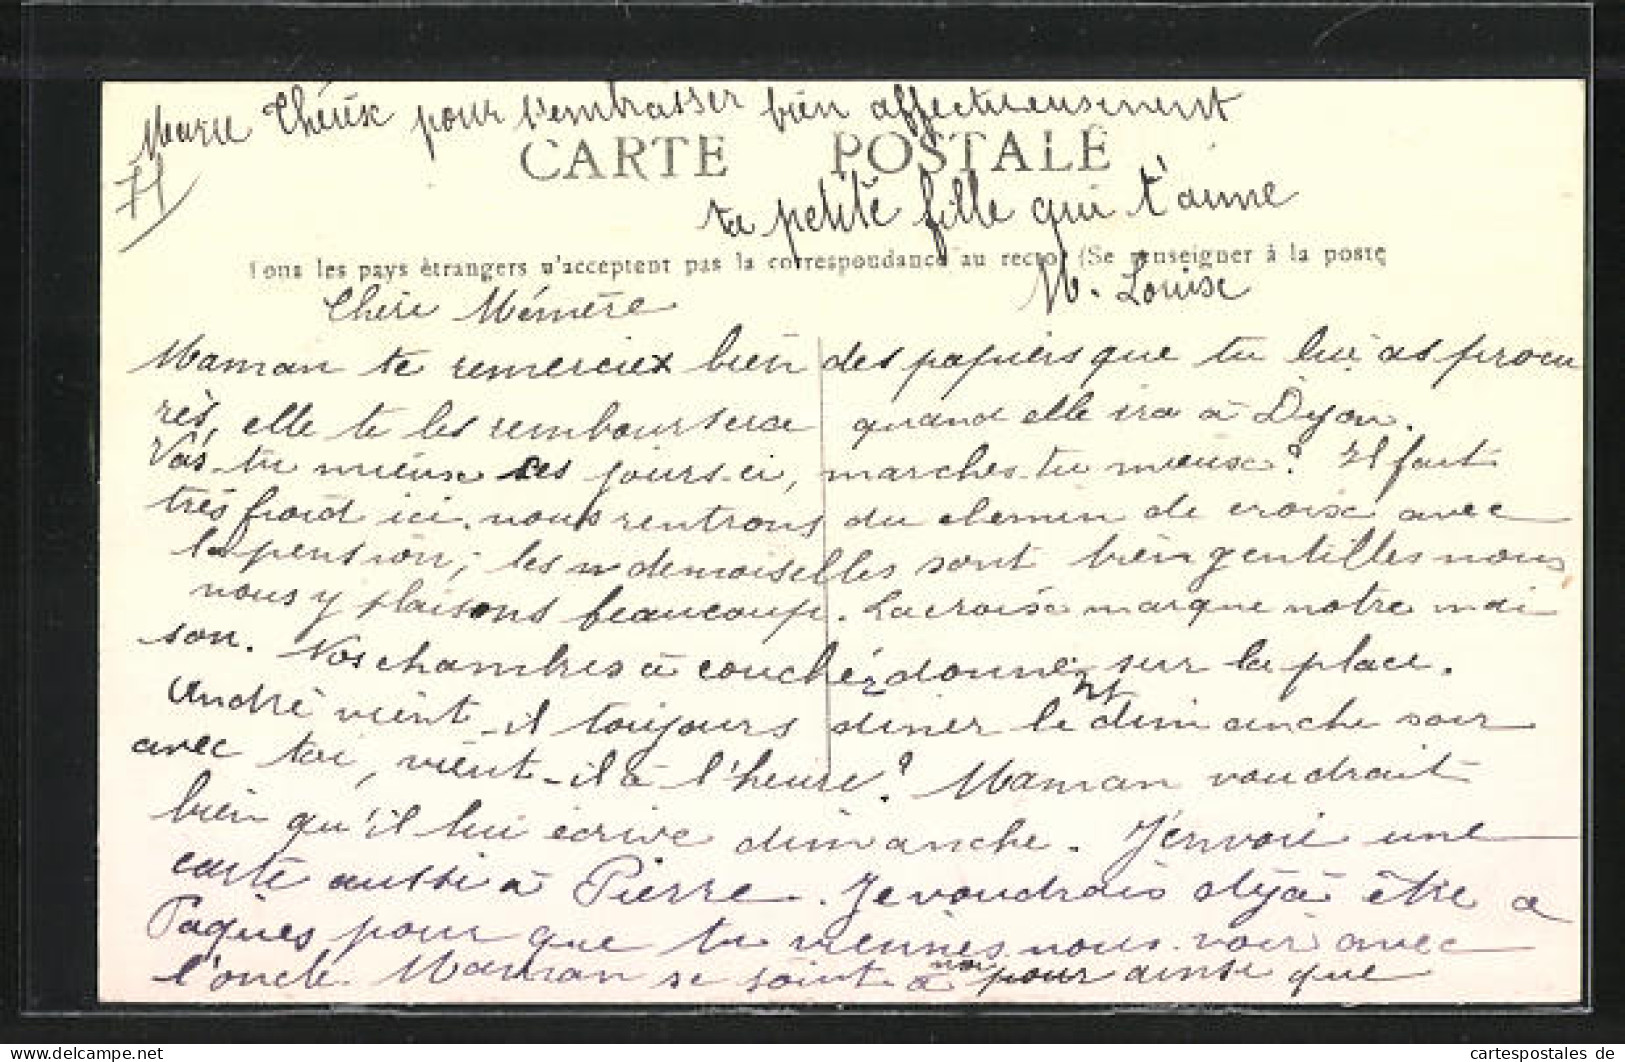 Marie Thérèse pour t'embrasser bien affectueusement
71
CARTE POSTALE
ta petite fille qui t'aime
Tous les pays étrangers n'acceptent pas la correspondance au recto (Se renseigner à la poste
M. Louise
Chère Mémère
Maman te remercie bien des papiers que tu lui as procu
rés, elle te les remboursera quand elle ira à Dijon.
Vas-tu mieux ces jours-ci, marches-tu mieux? Il fait
très froid ici. nous rentrons du chemin de croix avec
la pension; les demoiselles sont bien gentilles nous
nous y plaisons beaucoup. La croix marque notre mai
son. Nos chambres à couchér donnent sur la place.
André vient-il toujours diner le dimanche soir
avec toi, vient-il à l'heure? Maman voudrait
bien qu'il lui écrive dimanche. J'envoie une
carte aussi à Pierre. Je voudrais déjà être à
Pâques pour que tu viennes nous voir avec
l'oncle. Maman se joint à moi pour ainsi que
cartespostales de